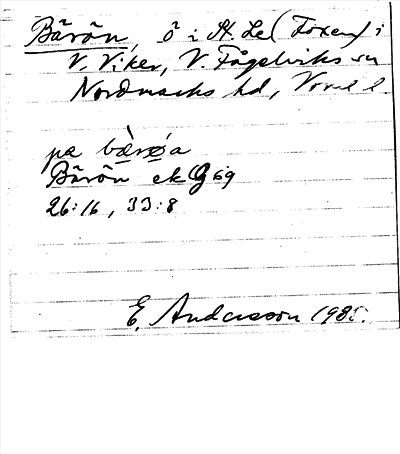 Bärön, ö i St. Le (Foxen) i
V. Viker, V. Fågelviks sn
Nordmarks hd, Vrml l.
pa bærøa
Bärön ek G 69
26:16, 33:8
E. Andersson 1985.